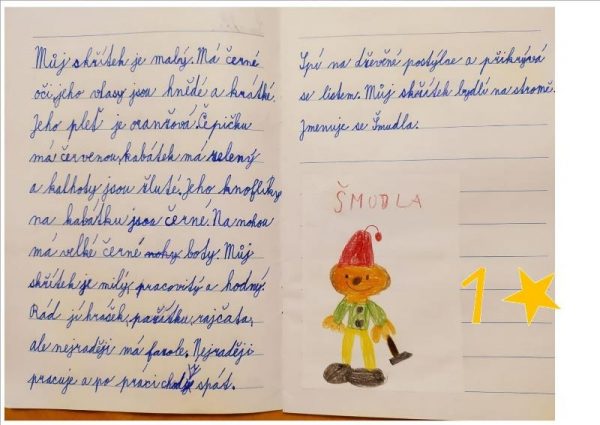 Můj skřítek je malý. Má černé
oči, jeho vlasy jsou hnědé a krátké.
Jeho pleť je oranžová. Čepičku
má červenou, kabátek má zelený
a kalhoty jsou žluté. Jeho knoflíky
na kabátku jsou černé. Na nohou
má velké černé nohy boty. Můj
skřítek je milý, pracovitý a hodný.
Rád jí hrášek, pažitku, rajčata,
ale nejraději má fazole. Nejraději
pracuje a po práci chodí spát.
Spí na dřevěné postýlce a přikrývá
se listem. Můj skřítek bydlí na stromě.
Jmenuje se Šmudla.
ŠMUDLA
1